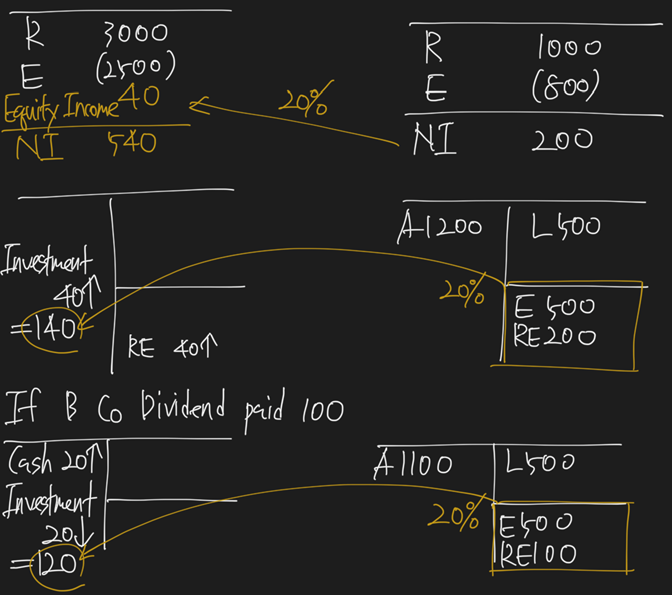 R 3000
E (2500)
Equity Income 40
NI 540
20%
R 1000
E (800)
NI 200
Investment
40↑
=140
RE 40↑
20%
A 1200
L 500
E 500
RE 200
If B Co Dividend paid 100
Cash 20↑
Investment
20↓
=120
20%
A 1100
L 500
E 500
RE 100